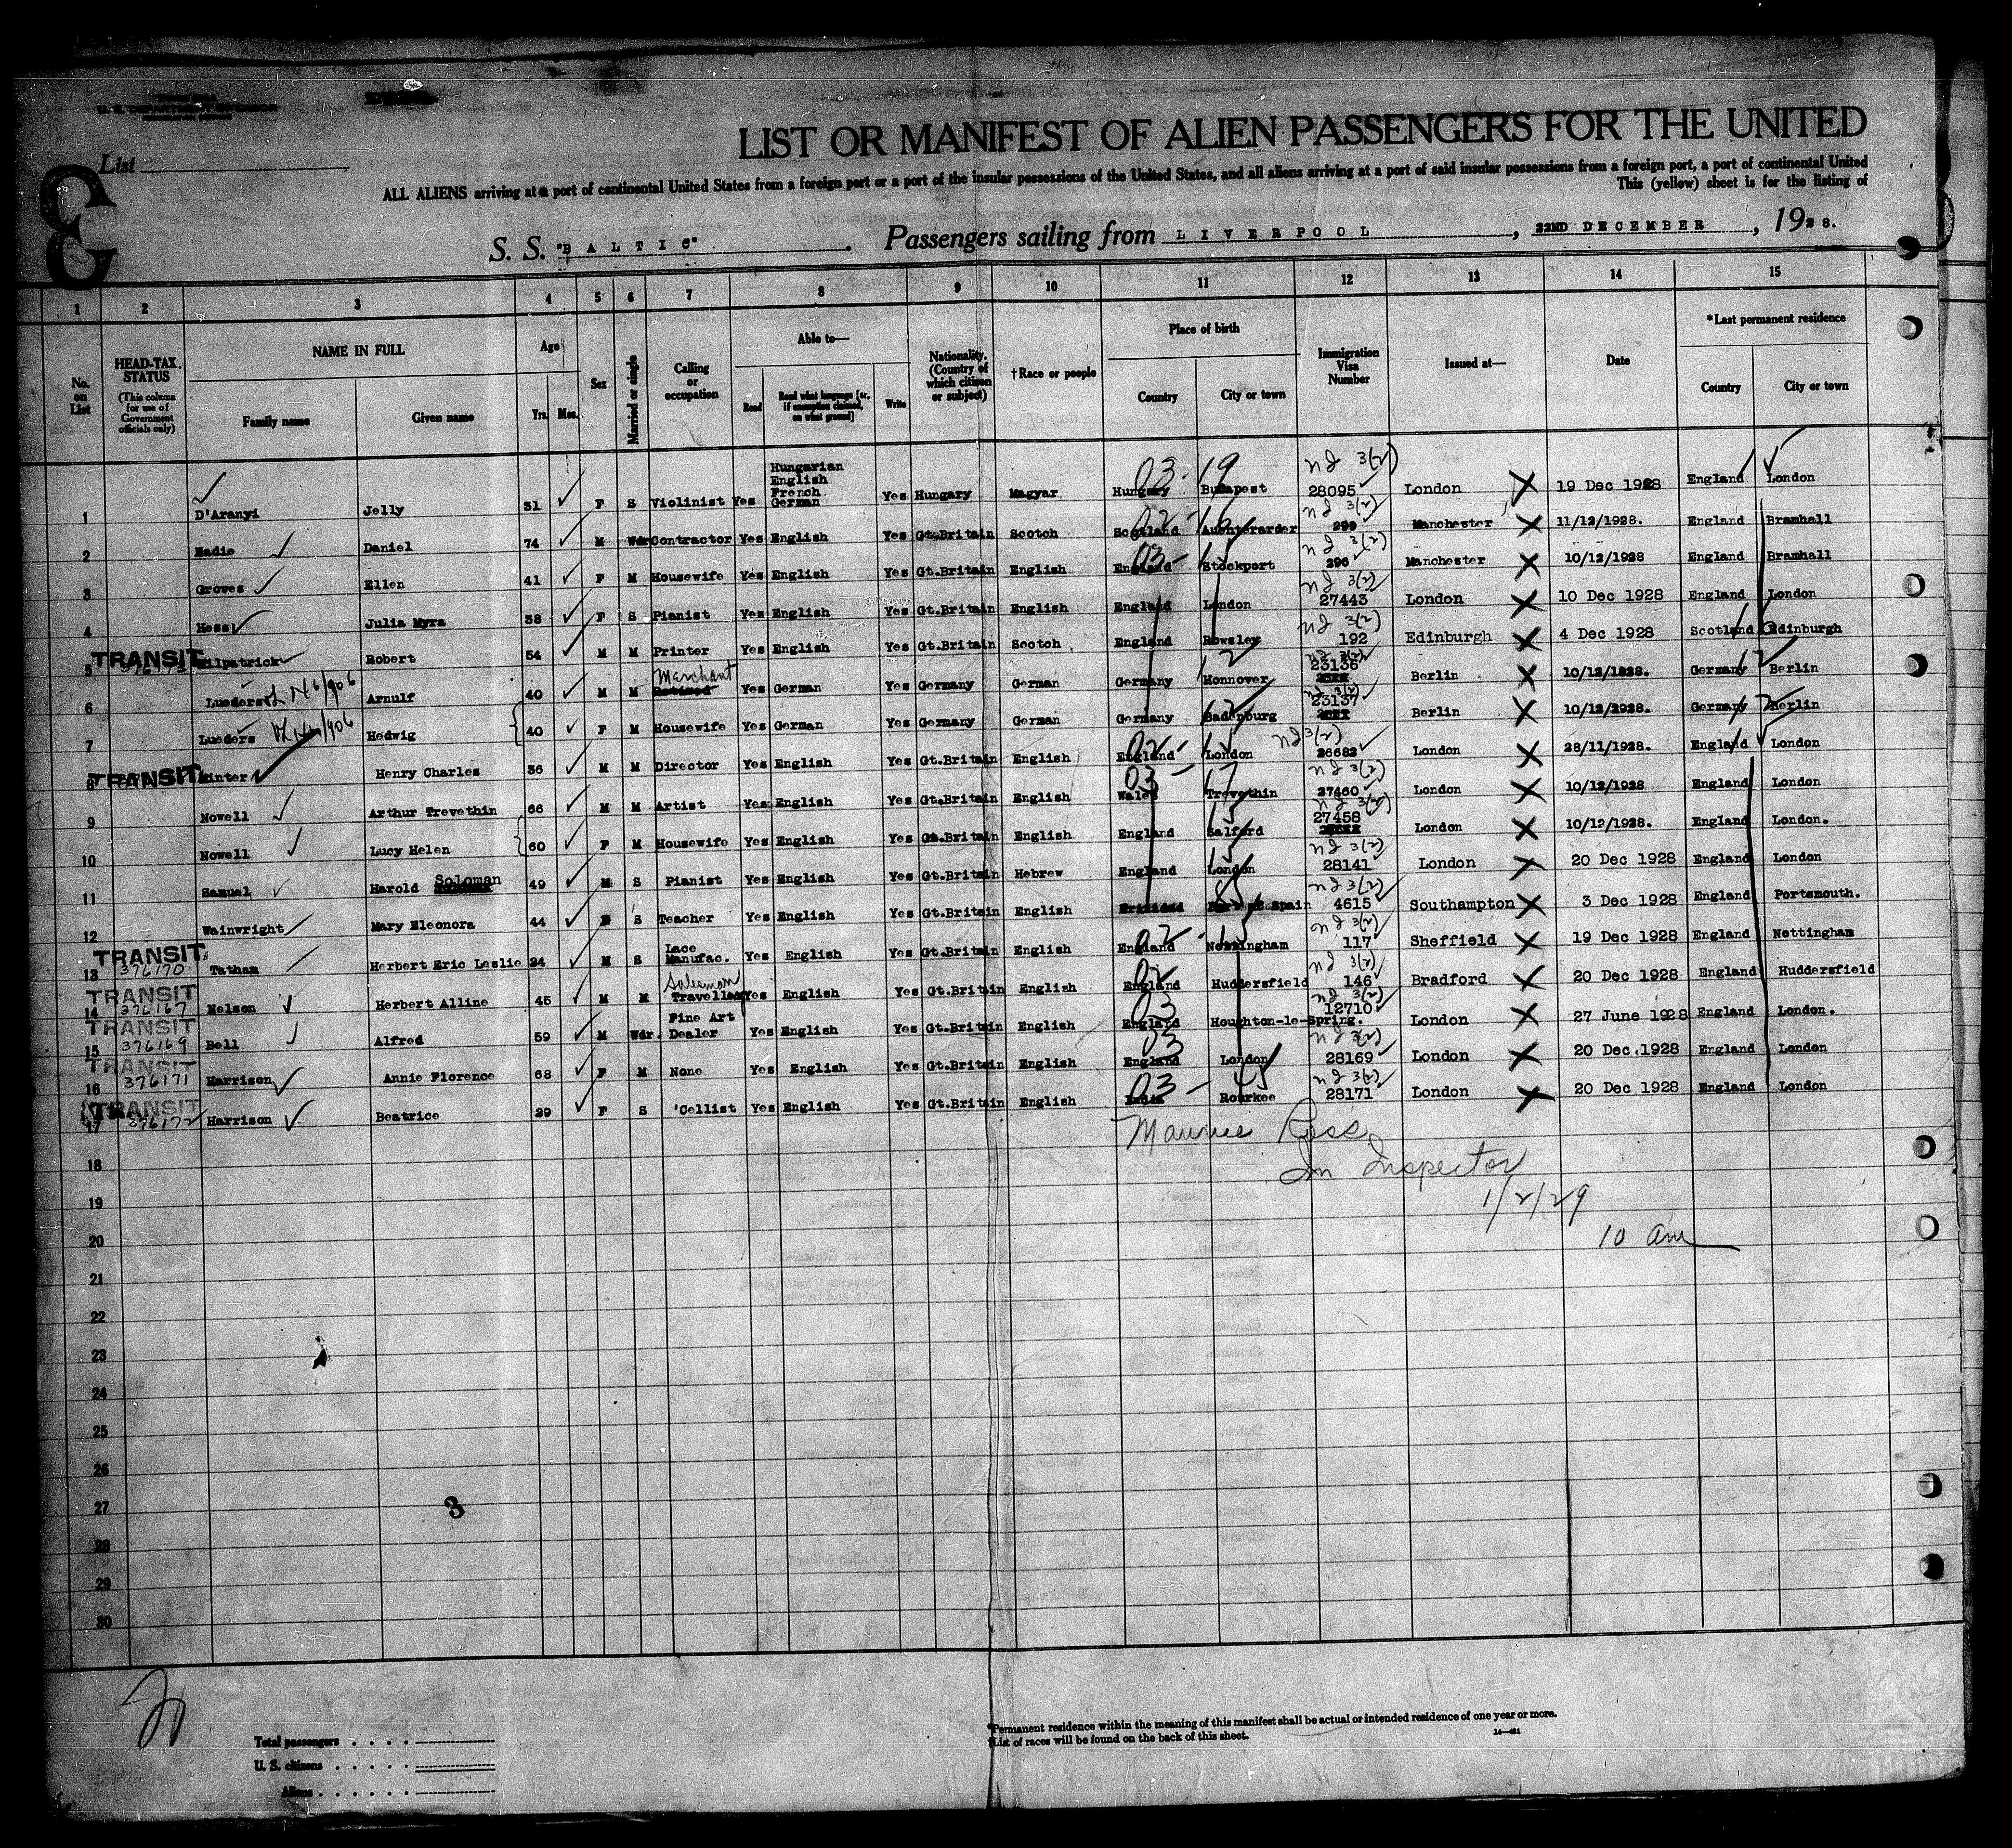 List
LIST OR MANIFEST OF ALIEN PASSENGERS FOR THE UNITED
ALL ALIENS arriving at a port of continental United States from a foreign port or a port of the insular possessions of the United States, and all aliens arriving at a port of said insular possessions from a foreign port, a port of continental United
This (yellow) sheet is for the listing of
S. S. "BALTIC" Passengers sailing from LIVERPOOL, 22ND DECEMBER, 1928.
1 2 3 4 5 6 7 8 9 10 11 12 13 14 15
No. on List
HEAD-TAX STATUS (This column for use of Government officials only)
NAME IN FULL
Family name Given name
Age
Yrs. Mos.
Sex
Married or single
Calling or occupation
Able to—
Read Read what language [or, if exemption claimed, on what ground] Write
Nationality. (Country of which citizen or subject)
†Race or people
Place of birth
Country City or town
Immigration Visa Number
Issued at—
Date
*Last permanent residence
Country City or town
1 D'Aranyi Jelly 31 F S Violinist Yes Hungarian English French German Yes Hungary Magyar Hungary Budapest 28095 London 19 Dec 1928 England London
2 Eadie Daniel 74 M Wdr Contractor Yes English Yes Gt.Britain Scotch Scotland Auchterarder 299 Manchester 11/12/1928. England Bramhall
3 Groves Ellen 41 F M Housewife Yes English Yes Gt.Britain English England Stockport 296 Manchester 10/12/1928 England Bramhall
4 Hess Julia Myra 38 F S Pianist Yes English Yes Gt.Britain English England London 27443 London 10 Dec 1928 England London
5 TRANSIT Kilpatrick Robert 54 M M Printer Yes English Yes Gt.Britain Scotch England Rowsley 192 Edinburgh 4 Dec 1928 Scotland Edinburgh
6 Lueders Arnulf 40 M M Merchant Yes German Yes Germany German Germany Honnover 23136 Berlin 10/12/1928. Germany Berlin
7 Lueders Hedwig 40 F M Housewife Yes German Yes Germany German Germany 23137 Berlin 10/12/1928. Germany Berlin
8 TRANSIT Henry Charles 36 M M Director Yes English Yes Gt.Britain English England London 26682 London 28/11/1928. England London
9 Nowell Arthur Trevethin 66 M M Artist Yes English Yes Gt.Britain English Wales Trevethin 27460 London 10/12/1928 England London
10 Nowell Lucy Helen 60 F M Housewife Yes English Yes Gt.Britain English England Salford 27458 London 10/12/1928. England London.
11 Samuel Harold Soloman 49 M S Pianist Yes English Yes Gt.Britain Hebrew England London 28141 London 20 Dec 1928 England London
12 Wainwright Mary Eleonora 44 S Teacher Yes English Yes Gt.Britain English Trinidad Spain 4615 Southampton 3 Dec 1928 England Portsmouth.
13 TRANSIT 376170 Tatham Herbert Eric Leslie 24 M S Lace Manufac. Yes English Yes Gt.Britain English England Nottingham 117 Sheffield 19 Dec 1928 England Nottingham
14 TRANSIT 376167 Nelson Herbert Alline 45 M M Salesman Traveller Yes English Yes Gt.Britain English England Huddersfield 146 Bradford 20 Dec 1928 England Huddersfield
15 TRANSIT 376169 Bell Alfred 59 M Wdr. Fine Art Dealer Yes English Yes Gt.Britain English England Houghton-le-Spring. 12710 London 27 June 1928 England London.
16 TRANSIT 376171 Harrison Annie Florence 68 F M None Yes English Yes Gt.Britain English England London 28169 London 20 Dec.1928 England London
17 TRANSIT 376172 Harrison Beatrice 29 F S 'Cellist Yes English Yes Gt.Britain English India Rourkee 28171 London 20 Dec 1928 England London
Maurice Ross
Im Inspector
1/2/29
10 am
18
19
20
21
22
23
24
25
26
27
3
28
29
30
Total passengers
U. S. citizens
Aliens
*Permanent residence within the meaning of this manifest shall be actual or intended residence of one year or more.
†List of races will be found on the back of this sheet.